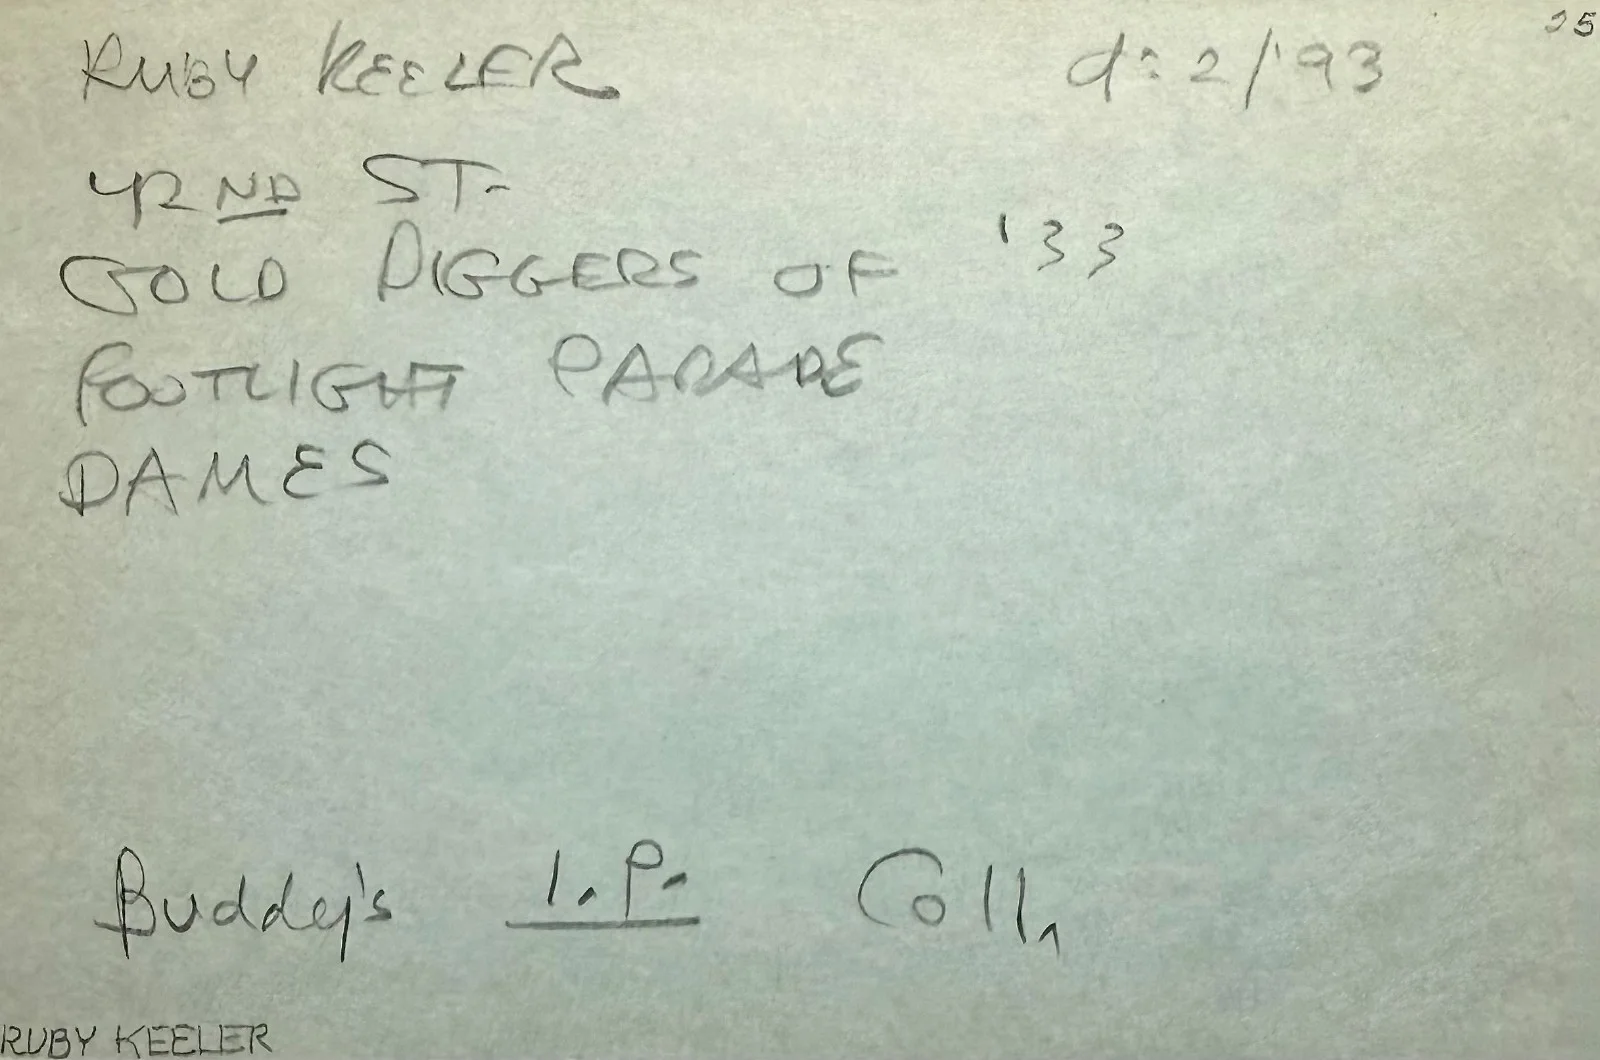 25
RUBY KEELER d: 2/'93
42ND ST.
GOLD DIGGERS OF '33
FOOTLIGHT PARADE
DAMES
Buddy's I.P. Coll.
RUBY KEELER